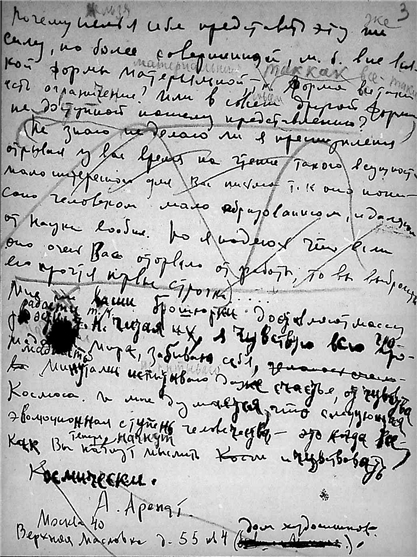 3
Почему нельзя себе представить эту же
силу, но более совершенной м. б. вне вся-
кой формы материальной
так как все-таки форма
есть ограничение? Или в своей другой форме
не доступной нашему представлению?
Не знаю не делаю ли я преступления
отрывая у вас время на чтение такого
мало интересного для Вас письма т. к. оно
человеком мало образованным, и далеким
от науки вообще. Но я надеюсь что если
оно очень Вас оторвало от работы, то вы выбросите
его прочтя первые строки.
Мне ваши брошюрки доставляют массу
радости
Читая их, я чувствую всю
мира, забываю себя,
минутами испытываю даже счастье, от чувства
Космоса. И мне думается, что следующая
эволюционная ступень человечества — это когда все
как Вы теперь начнут мыслить и чувствовать
Космически.
А. Арендт.
Москва 40
Верхняя Масловка д. 55 (дом художников).